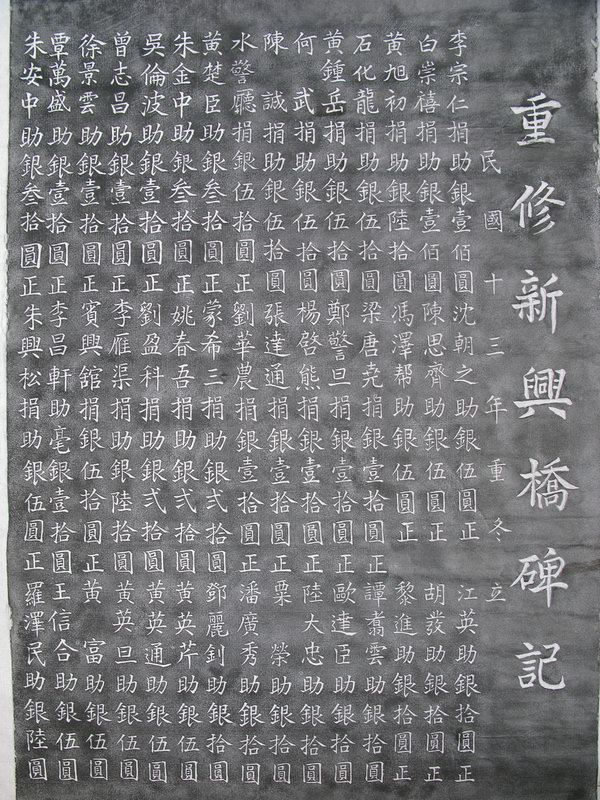 重修新興橋碑記
民國十三年重冬立
李宗仁捐助銀壹佰圓沈朝之助銀伍圓正 江英助銀拾圓正
白崇禧捐助銀壹佰圓陳思齊助銀伍圓正 胡發助銀拾圓正
黃旭初捐助銀陸拾圓馮澤帮助銀伍圓正 黎進助銀拾圓正
石化龍捐助銀伍拾圓梁唐尭捐銀壹拾圓正譚翥雲助銀拾圓
黃鍾岳捐助銀伍拾圓鄭警旦捐銀壹拾圓正歐達臣助銀拾圓
何 武捐助銀伍拾圓楊啓熊捐銀壹拾圓正陸大忠助銀拾圓
陳 誠捐助銀伍拾圓張達通捐銀壹拾圓正粟 榮助銀拾圓
水警廳捐銀伍拾圓正劉華農捐銀壹拾圓正潘廣秀助銀拾圓
黃楚臣助銀叁拾圓正蒙希三捐助銀弍拾圓鄧麗釗助銀拾圓
朱金中助銀叁拾圓正姚春吾捐助銀弍拾圓黃英芹助銀伍圓
吳倫波助銀壹拾圓正劉盈科捐助銀弍拾圓黃英通助銀伍圓
曾志昌助銀壹拾圓正李雁渠捐助銀陸拾圓黃英旦助銀伍圓
徐景雲助銀壹拾圓正賓興館捐銀伍拾圓正黃 富助銀伍圓
覃萬盛助銀壹拾圓正李昌軒助毫銀壹拾圓王信合助銀伍圓
朱安中助銀叁拾圓正朱興松捐助銀伍圓正羅澤民助銀陸圓